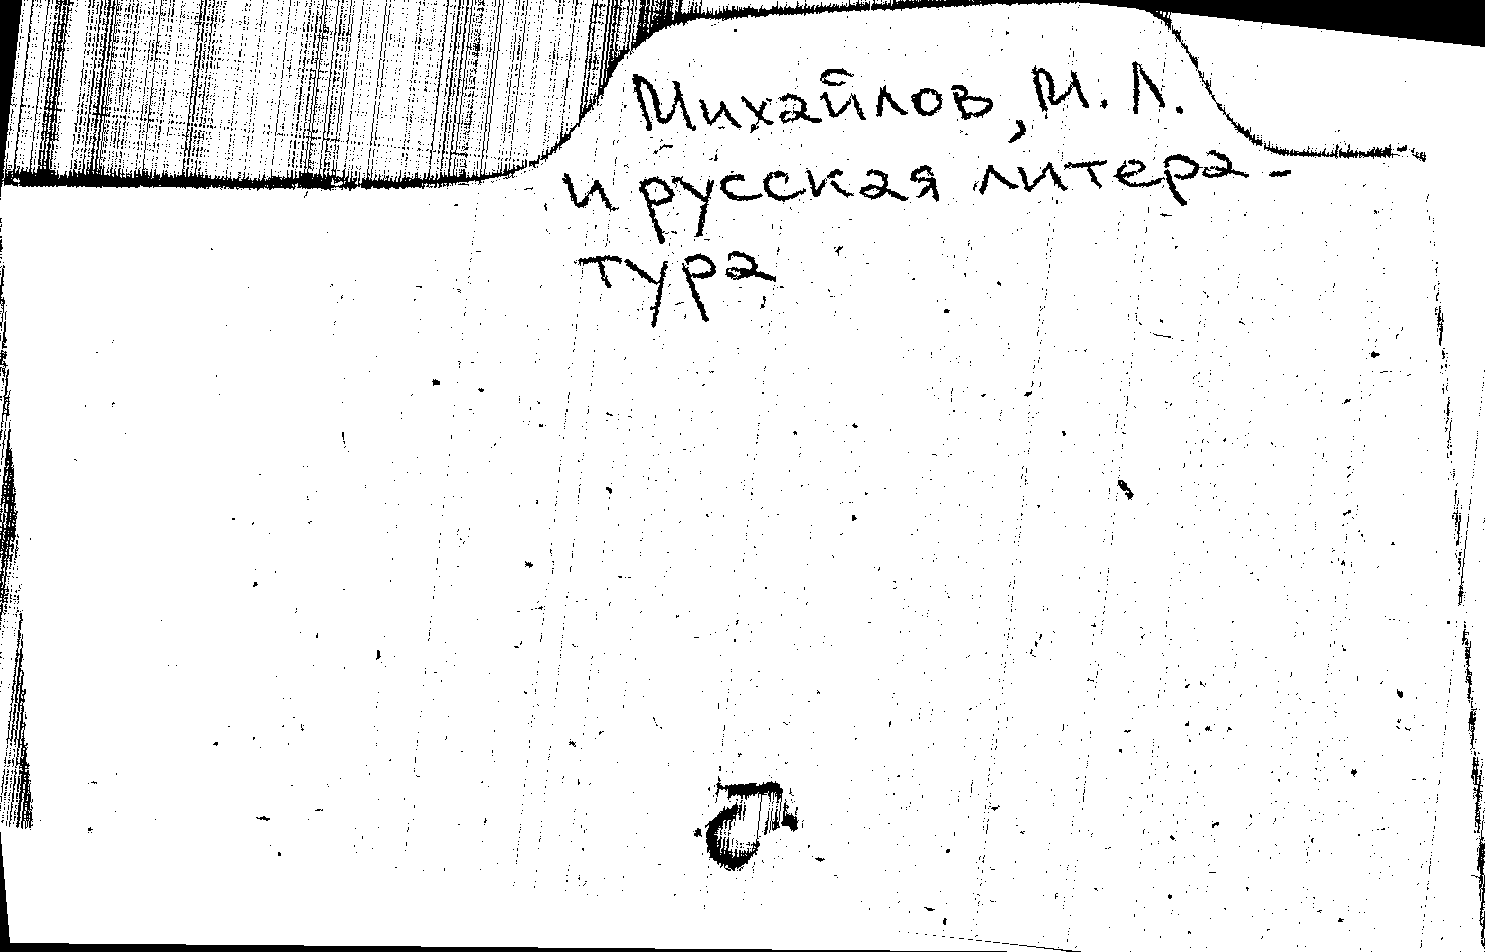 Михайлов, М. Л.
и русская литера-
тура